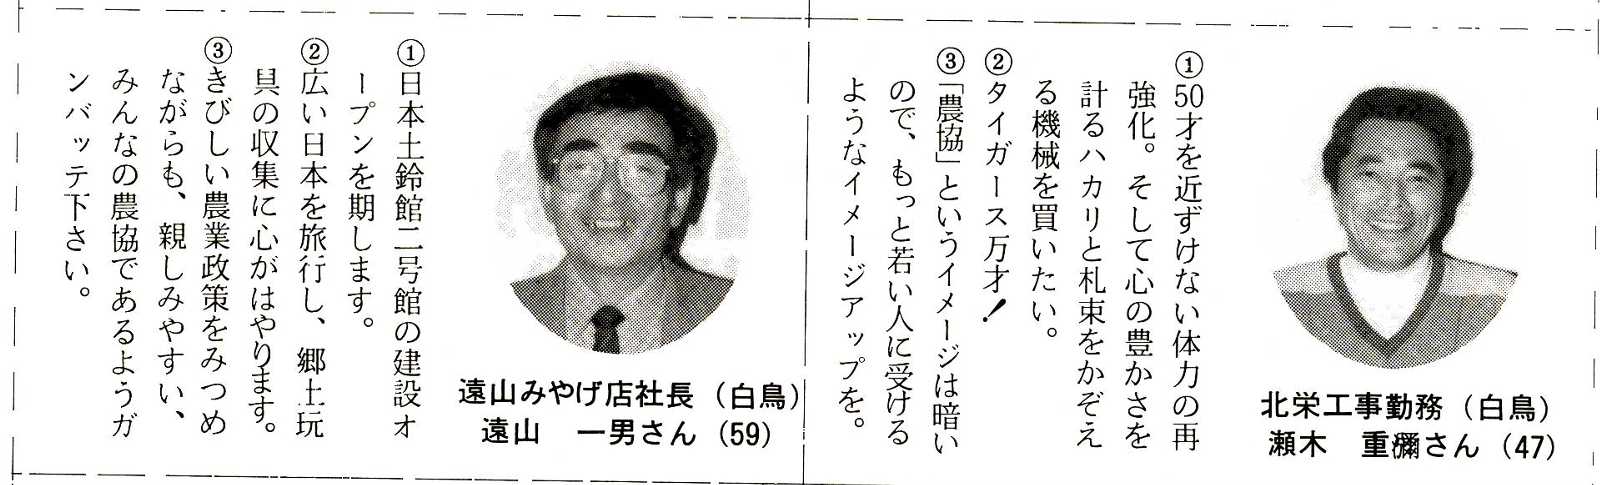 ①50才を近ずけない体力の再
強化。そして心の豊かさを
計るハカリと札束をかぞえ
る機械を買いたい。
②タイガース万才！
③「農協」というイメージは暗い
ので、もっと若い人に受ける
ようなイメージアップを。
北栄工事勤務（白鳥）
瀬木　重彌さん（47）
①日本土鈴館二号館の建設オ
ープンを期します。
②広い日本を旅行し、郷土玩
具の収集に心がはやります。
③きびしい農業政策をみつめ
ながらも、親しみやすい、
みんなの農協であるようガ
ンバッテ下さい。
遠山みやげ店社長（白鳥）
遠山　一男さん（59）